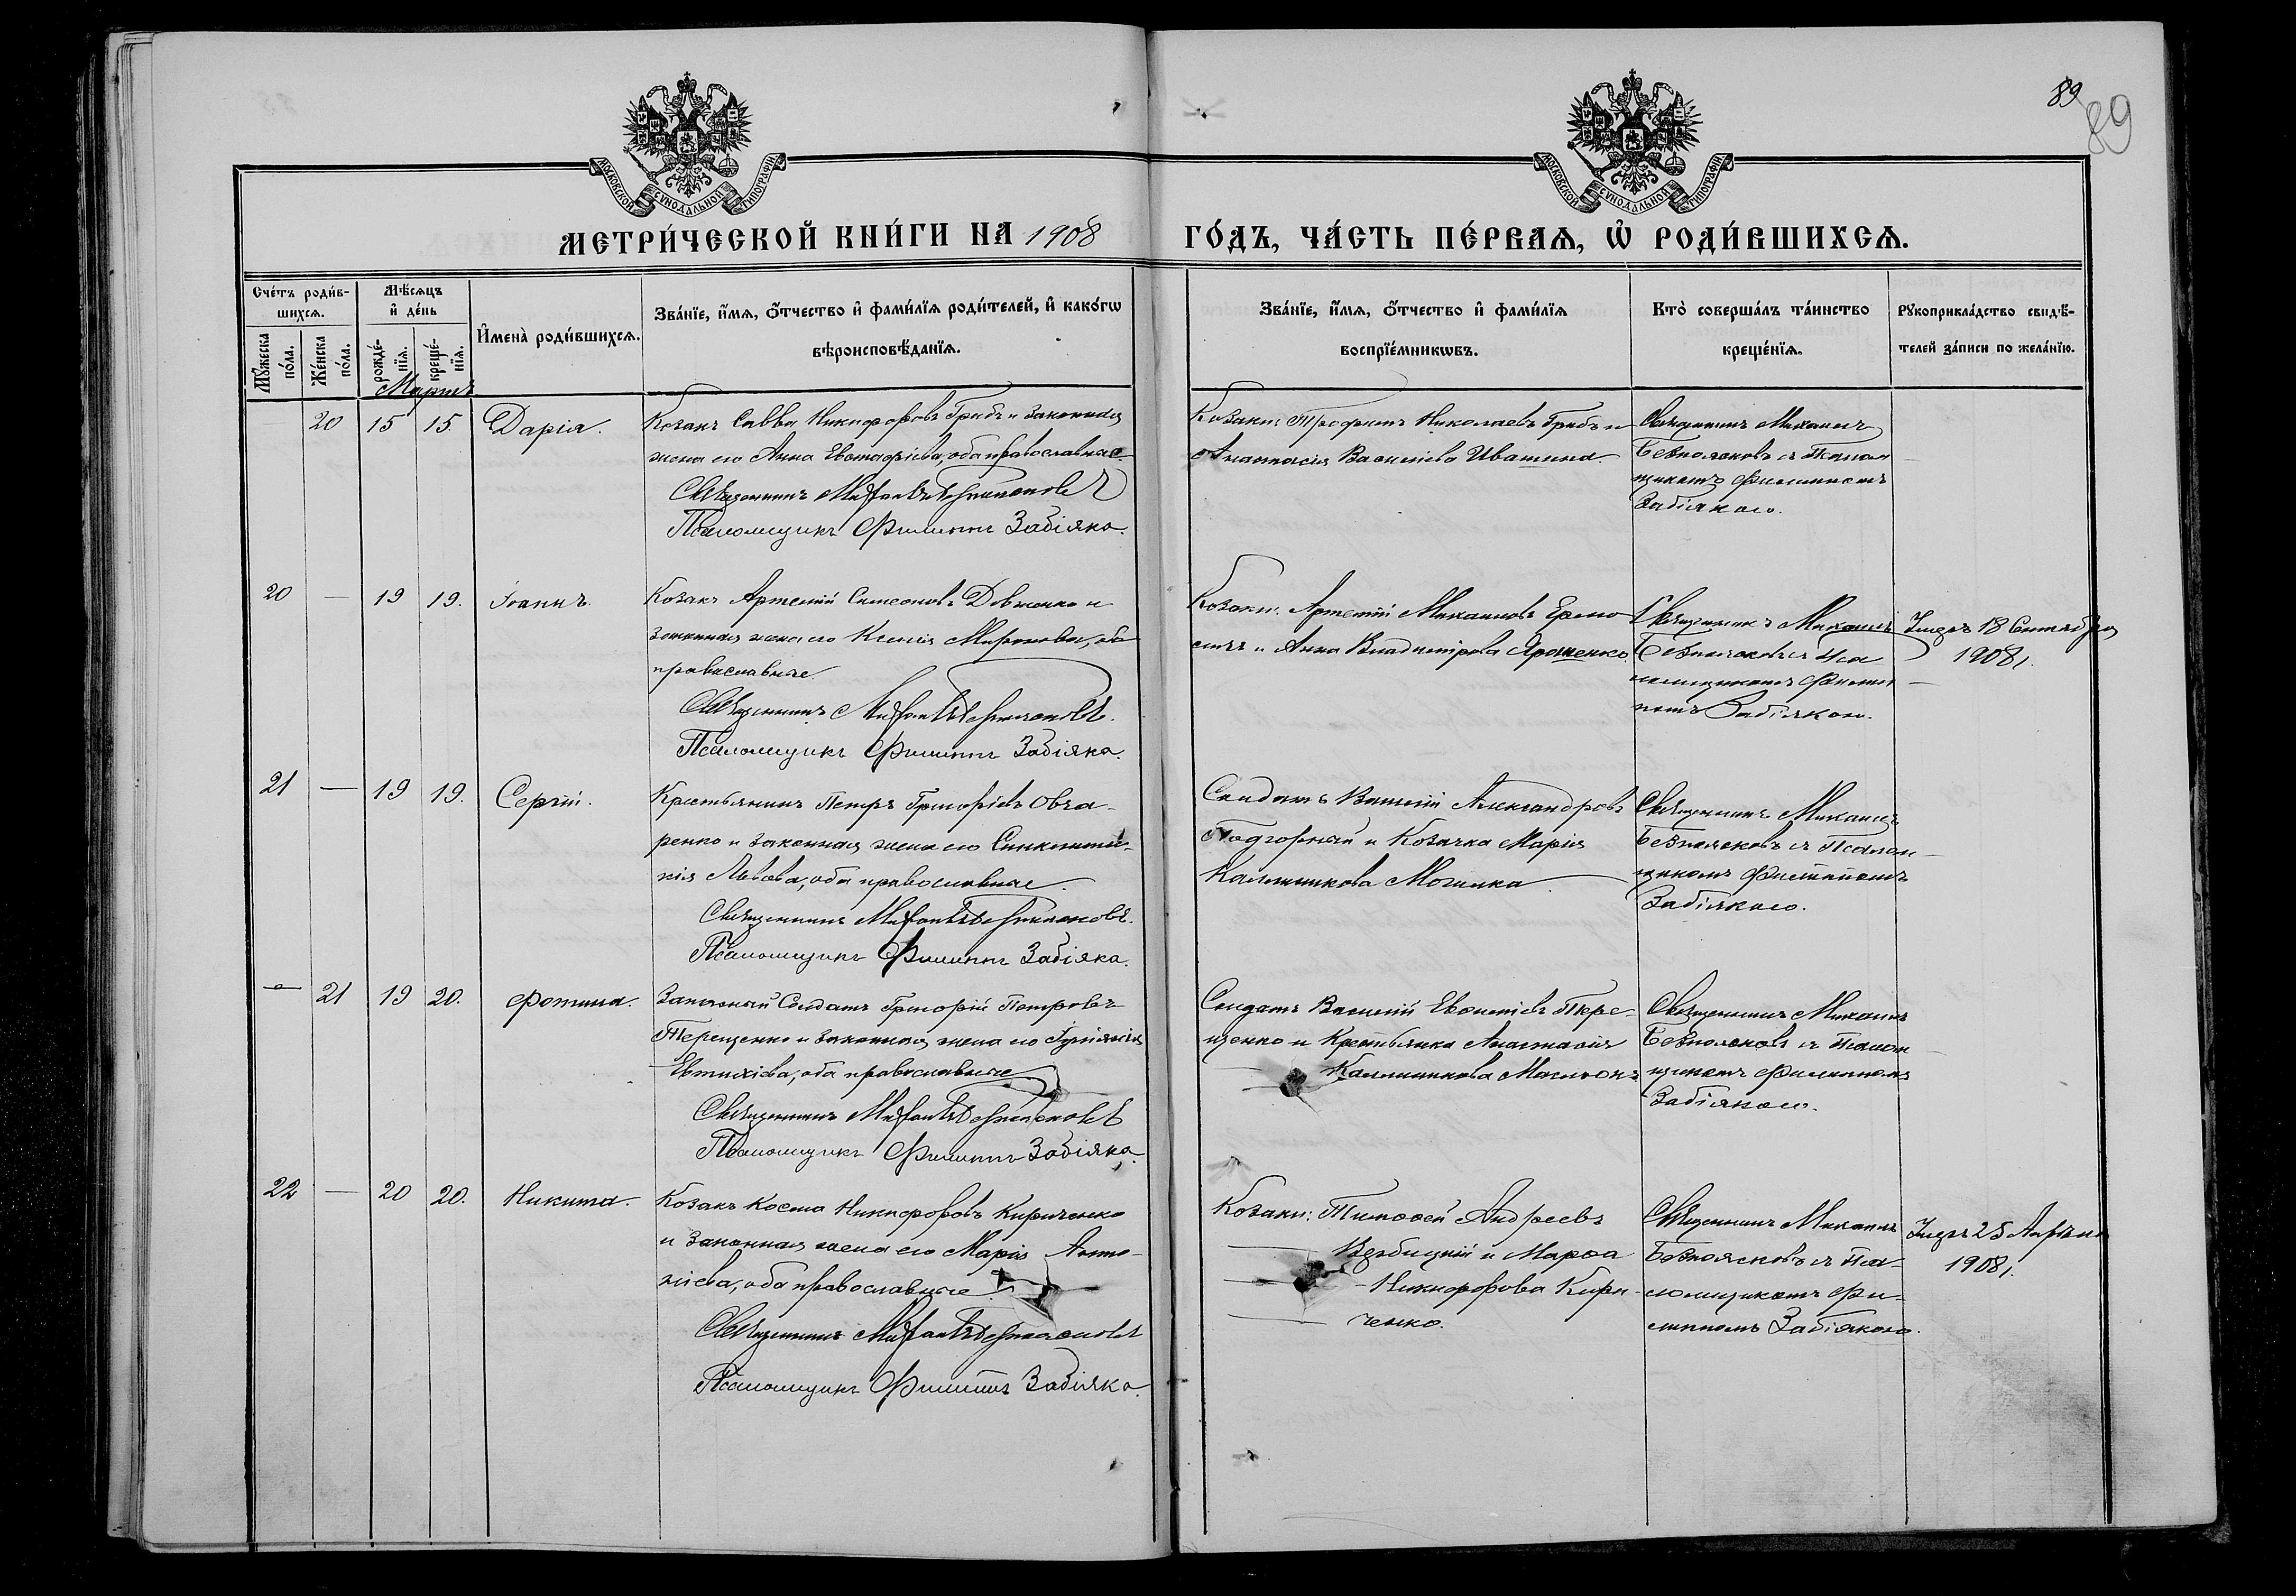 89
89
МОСКОВСКОЙ СѴНОДАЛЬНОЙ ТИПОГРАФІИ
МОСКОВСКОЙ СѴНОДАЛЬНОЙ ТИПОГРАФІИ
МЕТРИ́ЧЕСКОЙ КНИ́ГИ НА 1908 ГО́ДЪ, ЧА́СТЬ ПЕ́РВАѦ, Ѡ҆ РОДИ́ВШИХСѦ.
Сче́тъ роди́в-
шихсѧ.
Мꙋ́жеска
по́ла.
Же́нска
по́ла.
Мѣ́сѧцъ
и҆ де́нь
рожде́-
нїѧ.
креще́-
нїѧ.
И҆мена̀ роди́вшихсѧ.
Зва́нїе, и҆́мѧ, ѻ҆́тчество и҆ фами́лїѧ роди́телей, и҆ како́гѡ
вѣроисповѣ́данїѧ.
Зва́нїе, и҆́мѧ, ѻ҆́тчество и҆ фами́лїѧ
воспрїе́мникѡвъ.
Кто̀ соверша́лъ та́инство
креще́нїѧ.
Рꙋкоприкла́дство свидѣ́-
телей за́писи по жела́нїю.
Мартъ
20 15 15. Дарія.
Козакъ Савва Никифоровъ Грибъ и законная
жена его Анна Евстафіева, оба православные.
Священникъ Михаилъ
Псаломщикъ Филиппъ Забіяка.
Козаки: Трофимъ Николаевъ Грибъ и
Анастасія Василіева Ивашина.
Священникъ Михаилъ
Безпоясковъ съ Псалом
щикомъ Филиппомъ
Забіякою.
20 — 19 19. Іоаннъ.
Козакъ Артемій Симеоновъ Довженко и
законная жена его Ксенія Миронова, оба
православные.
Священникъ Михаилъ
Псаломщикъ Филиппъ Забіяка.
Козаки: Артемій Михаиловъ Ермо
и Анна Владимірова Ярошенко.
Священникъ Михаилъ
Безпоясковъ съ Пса
ломщикомъ Филип
помъ Забіякою.
Умеръ 18 Сентября
1908 г.
21 — 19 19. Сергій.
Крестьянинъ Петръ Григоріевъ Овча-
ренко и законная жена его Синклити-
кія Львова, оба православные.
Священникъ Михаилъ
Псаломщикъ Филиппъ Забіяка.
Солдатъ Василій Александровъ
Подгорный и Козачка Марія
Каллиникова Могилка.
Священникъ Михаилъ
Безпоясковъ съ Псалом
щикомъ Филиппомъ
Забіякою.
— 21 19 20. Фотина.
Запасный Солдатъ Григорій Петровъ
Терещенко и законная жена его Іуліанія
Евтихіева, оба православные
Священникъ Михаилъ
Псаломщикъ Филиппъ Забіяка.
Солдатъ Василій Тере-
щенко и Крестьянка Анастасія
Каллиникова
Священникъ Михаилъ
Безпоясковъ съ Псалом
щикомъ Филиппомъ
Забіякою.
22 — 20 20. Никита.
Козакъ Косма Никифоровъ Кириченко
и законная жена его Марія Анто-
ніева, оба православные.
Священникъ Михаилъ
Псаломщикъ Филиппъ Забіяка.
Козаки: Тимоѳей Андреевъ
Вербицкій и Марѳа
Никифорова Кири-
ченко.
Священникъ Михаилъ
Безпоясковъ съ Пса-
ломщикомъ Фи-
липпомъ Забіякою.
Умеръ 25 Апрѣля
1908 г.